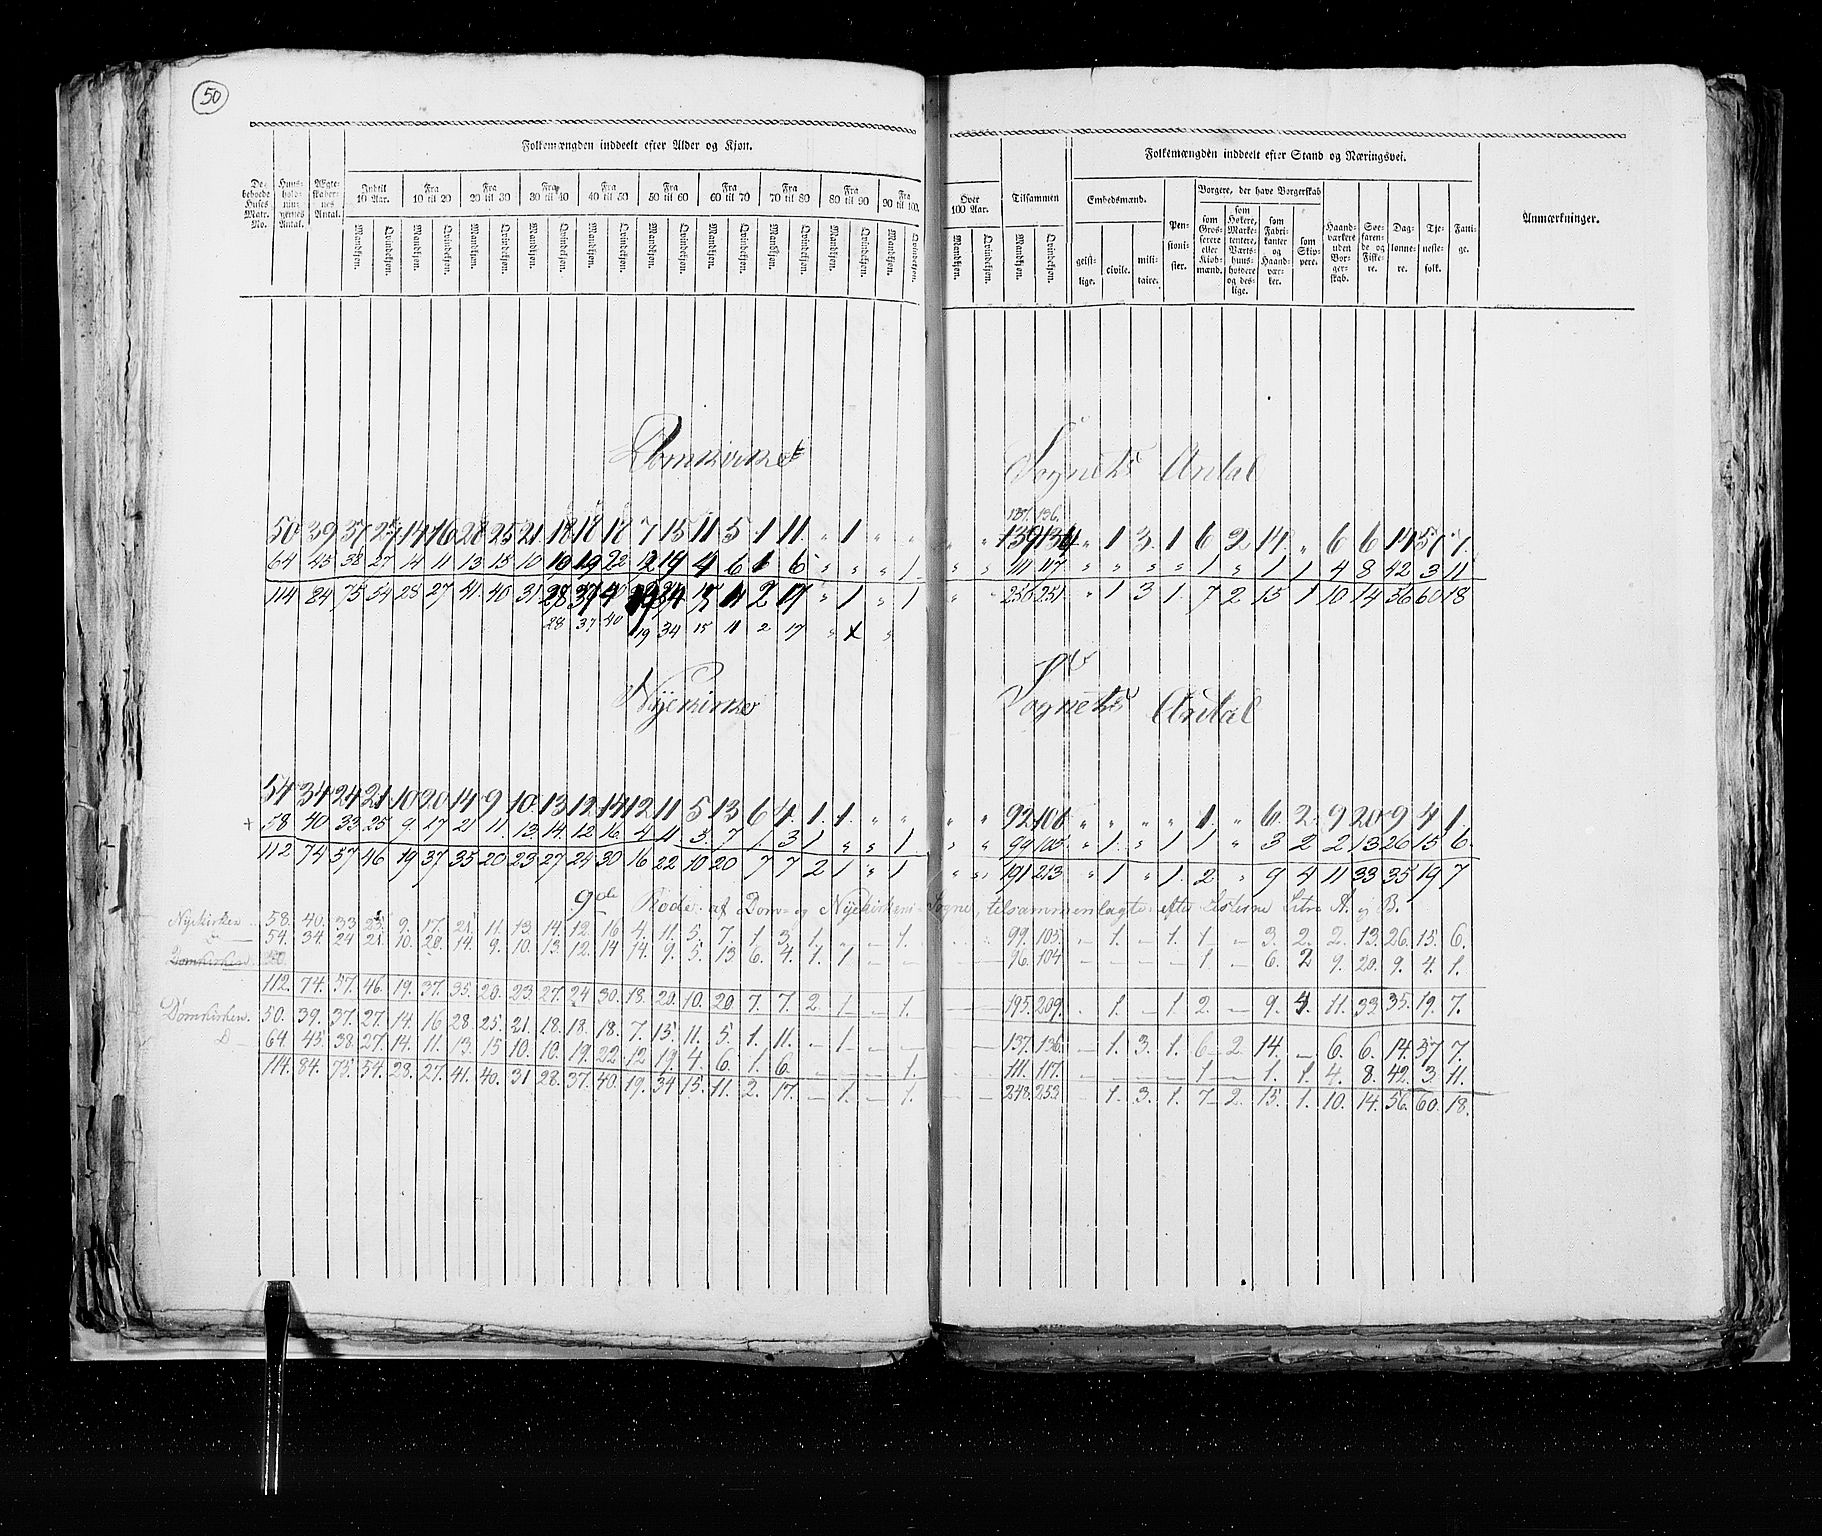 50
Folkemængden inddeelt efter Alder og Kjøn.
Folkemængden inddeelt efter Stand og Næringsvei.
De beboede Huses Matr. No.
Huus-holdningernes Antal.
Ægteskabernes Antal.
Indtil 10 Aar.
Fra 10 til 20
Fra 20 til 30
Fra 30 til 40
Fra 40 til 50
Fra 50 til 60
Fra 60 til 70
Fra 70 til 80
Fra 80 til 90
Fra 90 til 100.
Over 100 Aar.
Tilsammen
Mandkjøn. Qvindekjøn.
Embedsmænd.
geistlige. civile. militaire.
Pensionister.
Borgere, der have Borgerskab
som Grosserere eller Kiøbmænd.
som Høkere, Marketentere, Værtshuusholdere og deslige.
som Fabrikanter og Haandværker.
som Skippere.
Haandværkere uden Borgerskab.
Søefarende og Fiskere.
Daglønnere.
Tjenestefolk.
Fattige.
Anmærkninger.
Domkirket Sognets Antal
137. 136.
50 39 37 27 14 16 28 25 21 18 18 18 7 15 11 5 1 11 " 1 " " " " " 1 3. 1 6 2 14. " 6 6 14 57 7.
64 45 38 27 14 11 13 15 10 10 19 22 12 19 4 6 1 6 " " " 1 " " 111 117 " " " " 1 " 1 1 4 8 42 3 11
114 84 75 54 28 27 41 40 31 28 37 40 34 15 11 2 17 " 1 " 1 " " 251 " 1 3 1. 7 2 15 1 10 14 56 60 18
28 37 40 19 34 15 11 2 17 " "
Nyekirke Sognets Antal
54 34 24 21 10 20 14 9 10. 13 12. 14 12 11 5 13 6 4. 1. 1. " " " " 92 " " " " 1. " 6. 2. 9 20 9 4 1.
+ 58 40 33 25 9. 17 21 11. 13. 14. 12 16. 4 11 5. 7 1. 3 1 " " 1 " " 99 105 " 1. " 1 1 " 3 2 2 13 26 15 6.
112 74 57 46 19 37 35 20 23 27 24 30 16 22 10 20 7 7 2 1 " 1 " " 191 213 " 1 " 1. 2 " 9 4 11 33 35 19 7
9de Rode af Dom- og Nyekirkens Sogne, tilsammenlagte efter Listerne Litr. A. og B.
Nyekirken 58. 40. 33 25. 9. 17. 21. 11. 13. 14. 12. 16 4. 11 5. 7. 1. 3. 1. " — 1. 99. 105. — 1. — 1. 1 — 3. 2. 2. 13. 26. 15. 6.
54. 34. 24 21. 10. 20. 14. 9. 10. 13. 12. 14 14. 9. 5. 13 6. 4. 1. 1 — — 96. 104 — — — — 1. — 6. 2 9. 20. 9. 4. 1.
Domkirken. 50
112. 74. 57. 46. 19. 37. 35. 20. 23. 27. 24 30. 18. 20. 10. 20. 7. 7. 2. 1 — 1. 195. 209. 1. — 1. 2. — 9. 4. 11. 33. 35. 19. 7.
Domkirken. 50. 39. 37. 27. 14. 16 28. 25. 21. 18. 18. 18. 7. 15. 11. 5. 1. 11. — 1. — — 137. 136. — 1. 3. 1. 6 2. 14. — 6. 6. 14. 57 7.
D — 64 45. 38. 27. 14. 11. 13. 15 10. 10. 19. 22. 12 19. 4. 6. 1. 6. — — — 1. 111. 117. — — — — 1 — 1. 1. 4. 8. 42. 3. 11.
114. 84. 75. 54. 28. 27. 41. 40. 31 28. 37. 40. 19. 34 15. 11. 2. 17. — 1. — 1. 248. 253. — 1. 3. 1. 7 2. 15. 1. 10. 14. 56. 60. 18.